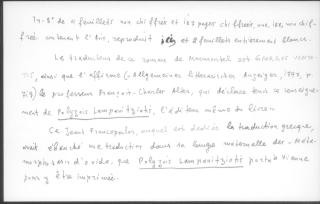 In-8° de 4 feuillets non chiffrés et 167 pages chiffrées, une
contenant l'Avis, reproduit ici et 2 feuillets entièrement blancs.
Le traducteur de ce romans de Marmontel est GEORGES
ainsi que l'affirme (« Allgemeiner litterarischer Anzeiger,
le professeur François-Charles Alter, qui déclare tenir ce renseigne-
ment de Polyzois Lampanitziotis, l'éditeur même du livre.
Ce Jean Francopulos, auquel est dédiée la traduction grecque,
avait ébauché une traduction dans sa langue maternelle des «Méta-
morphoses» d'Ovide, que Polyzois Lampanitziotis porta à Vienne
pour y être imprimée.